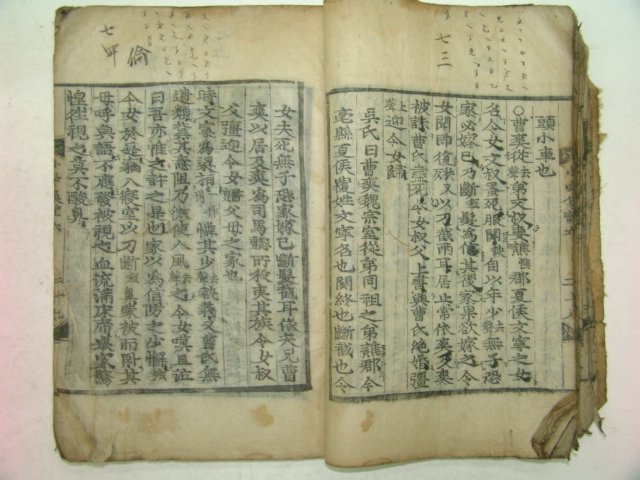 七三
頭小車也
○曹爽從去聲弟文叔妻譙郡夏侯文寧之女
名令女文叔蚤死服闋自以年少去聲無子恐
家必嫁己乃斷髮爲信其後家果欲嫁之令
女聞即復以刀截兩耳居止常依爽及爽
被誅曹氏盡死令女叔父上書與曹氏絶婚彊
上聲迎令女歸
吳氏曰曹爽魏宗室從弟同祖之弟譙郡今
亳縣夏侯覆姓文寧名也闋終也斷截也令
女夫死無子恐家嫁己斷髮截耳依夫兄曹
爽以居及爽爲司馬懿所殺夷其族令女叔
父彊迎令女歸父母之家也
時文寧爲梁相憐其少去聲執義又曹氏無
遺類冀其意阻乃微使人風去聲之令女嘆且泣
曰吾亦惟之許之是也家以爲信防之少懈
令女於是竊入寢室以刀斷鼻蒙被而臥其
母呼與語不應發被視之血流滿床席舉家驚
惶往視之莫不酸鼻
倫